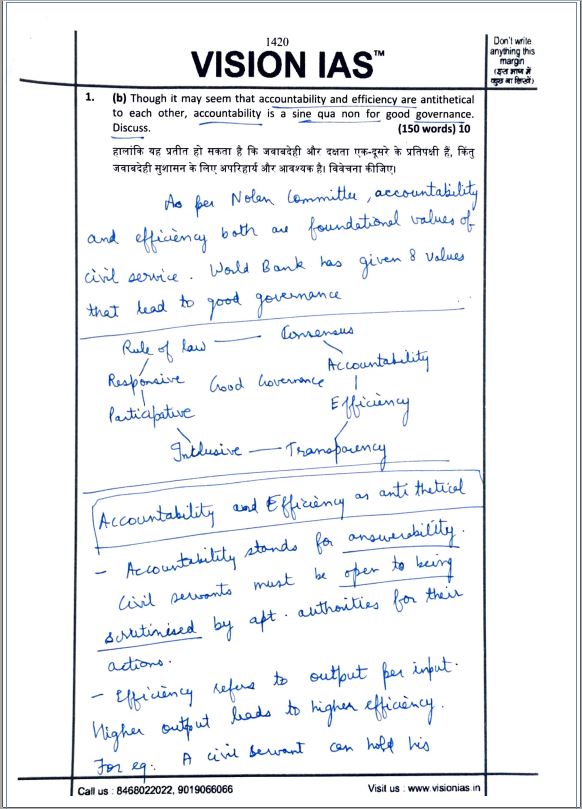 1420
VISION IAS™
Don't write
anything this
margin
(इस भाग में
कुछ ना लिखें)
1. (b) Though it may seem that accountability and efficiency are antithetical
to each other, accountability is a sine qua non for good governance.
Discuss. (150 words) 10
हालांकि यह प्रतीत हो सकता है कि जवाबदेही और दक्षता एक-दूसरे के प्रतिपक्षी हैं, किंतु
जवाबदेही सुशासन के लिए अपरिहार्य और आवश्यक है। विवेचना कीजिए।
As per Nolan Committee, accountability
and efficiency both are foundational values of
civil service. World Bank has given 8 values
that lead to good governance
Rule of law — Consensus
Responsive Good Governance Accountability
Participative Efficiency
Inclusive — Transparency
Accountability and Efficiency as anti thetical
- Accountability stands for answerability.
Civil servants must be open to being
scrutinised by apt. authorities for their
actions.
- Efficiency refers to output per input.
Higher output leads to higher efficiency.
For eg: A civil servant can hold his
Call us : 8468022022, 9019066066
Visit us : www.visionias.in